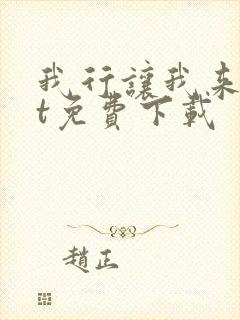 我行讓我來
t免費下載
趙正